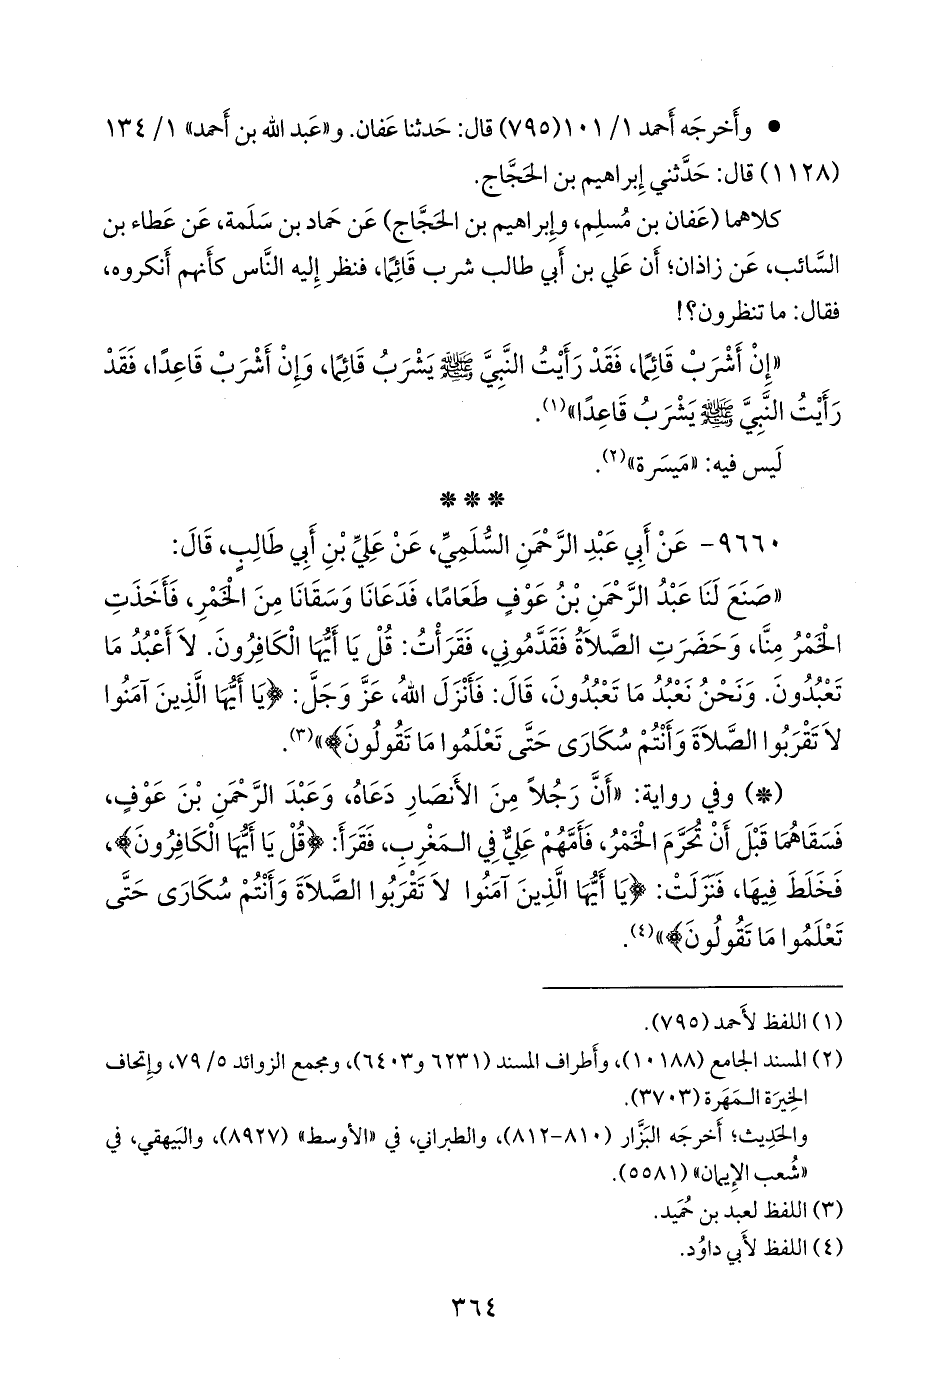 • وأَخرجَه أَحمد ١/ ١٠١(٧٩٥) قال: حَدثنا عَفان. و«عَبد الله بن أَحمد» ١/ ١٣٤
(١١٢٨) قال: حَدَّثني إِبراهيم بن الحَجَّاج.
كلاهما (عَفان بن مُسلِم، وإِبراهيم بن الحَجَّاج) عَن حَماد بن سَلَمة، عَن عَطاء بن
السَّائب، عَن زاذان؛ أَن عَلي بن أَبي طالب شرب قَائِمًا، فنظر إِليه النَّاس كأَنهم أَنكروه،
فقال: ما تنظرون؟!
«إِنْ أَشْرَبْ قَائِمًا، فَقَدْ رَأَيْتُ النَّبِيَّ ﷺ يَشْرَبُ قَائِمًا، وَإِنْ أَشْرَبْ قَاعِدًا، فَقَدْ
رَأَيْتُ النَّبِيَّ ﷺ يَشْرَبُ قَاعِدًا»(١).
لَيس فيه: «مَيسَرة»(٢).
***
٩٦٦٠- عَنْ أَبِي عَبْدِ الرَّحْمَنِ السُّلَمِيِّ، عَنْ عَلِيِّ بْنِ أَبِي طَالِبٍ، قَالَ:
«صَنَعَ لَنَا عَبْدُ الرَّحْمَنِ بْنُ عَوْفٍ طَعَامًا، فَدَعَانَا وَسَقَانَا مِنَ الْخَمْرِ، فَأَخَذَتِ
الْخَمْرُ مِنَّا، وَحَضَرَتِ الصَّلاَةُ فَقَدَّمُونِي، فَقَرَأْتُ: قُلْ يَا أَيُّهَا الْكَافِرُونَ. لاَ أَعْبُدُ مَا
تَعْبُدُونَ. وَنَحْنُ نَعْبُدُ مَا تَعْبُدُونَ، قَالَ: فَأَنْزَلَ اللهُ، عَزَّ وَجَلَّ: ﴿يَا أَيُّهَا الَّذِينَ آمَنُوا
لاَ تَقْرَبُوا الصَّلاَةَ وَأَنْتُمْ سُكَارَى حَتَّى تَعْلَمُوا مَا تَقُولُونَ﴾»(٣).
(*) وفي رواية: «أَنَّ رَجُلاً مِنَ الأَنْصَارِ دَعَاهُ، وَعَبْدَ الرَّحْمَنِ بْنَ عَوْفٍ،
فَسَقَاهُمَا قَبْلَ أَنْ تُحَرَّمَ الْخَمْرُ، فَأَمَّهُمْ عَلِيٌّ فِي الْمَغْرِبِ، فَقَرَأَ: ﴿قُلْ يَا أَيُّهَا الْكَافِرُونَ﴾،
فَخَلَطَ فِيهَا، فَنَزَلَتْ: ﴿يَا أَيُّهَا الَّذِينَ آمَنُوا لاَ تَقْرَبُوا الصَّلاَةَ وَأَنْتُمْ سُكَارَى حَتَّى
تَعْلَمُوا مَا تَقُولُونَ﴾»(٤).
(١) اللفظ لأَحمد (٧٩٥).
(٢) المسند الجامع (١٠١٨٨)، وأَطراف المسند (٦٢٣١ و٦٤٠٣)، ومجمع الزوائد ٥/ ٧٩، وإِتحاف
الخِيرَة المَهَرة (٣٧٠٣).
والحَدِيث؛ أَخرجَه البَزَّار (٨١٠-٨١٢)، والطبراني، في «الأَوسط» (٨٩٢٧)، والبَيهقي، في
«شُعب الإِيمان» (٥٥٨١).
(٣) اللفظ لعبد بن حُمَيد.
(٤) اللفظ لأَبي داوُد.
٣٦٤